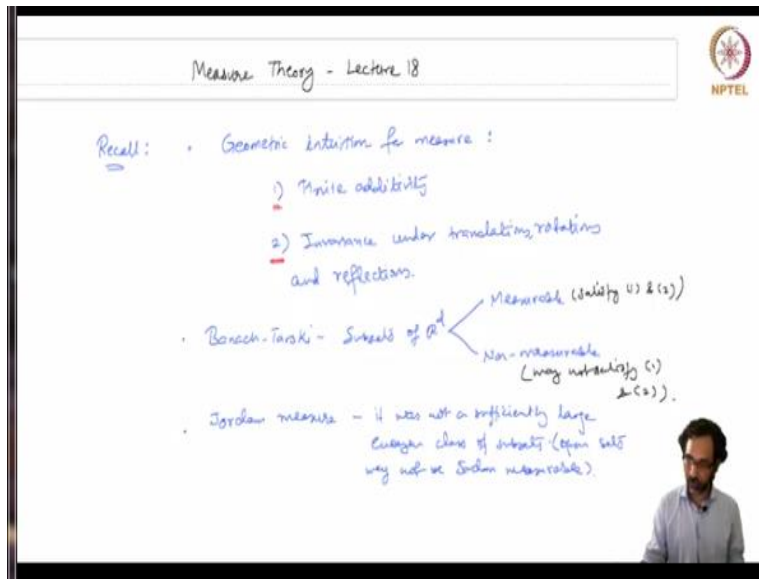 Measure Theory - Lecture 18
NPTEL
Recall: • Geometric intuition for measure:
1) Finite additivity
2) Invariance under translations, rotations
and reflections.
• Banach-Tarski - Subsets of R^d
Measurable (satisfy (1) & (2))
Non-measurable
(may not satisfy (1)
& (2)).
• Jordan measure - it was not a sufficiently large
class of subsets (open sets
may not be Jordan measurable).